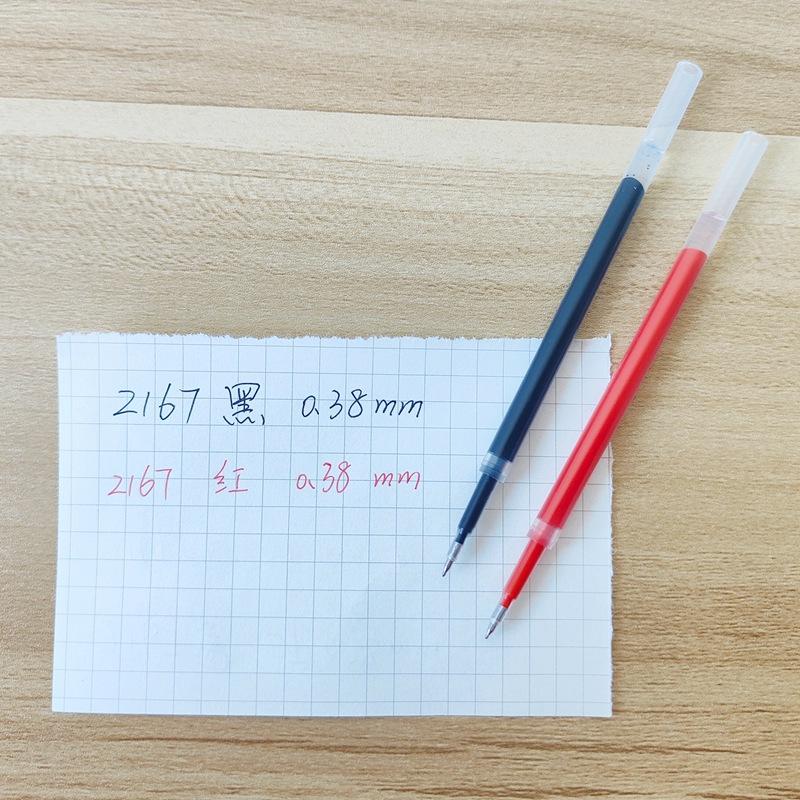 2167 黑 0.38mm
2167 红 0.38 mm